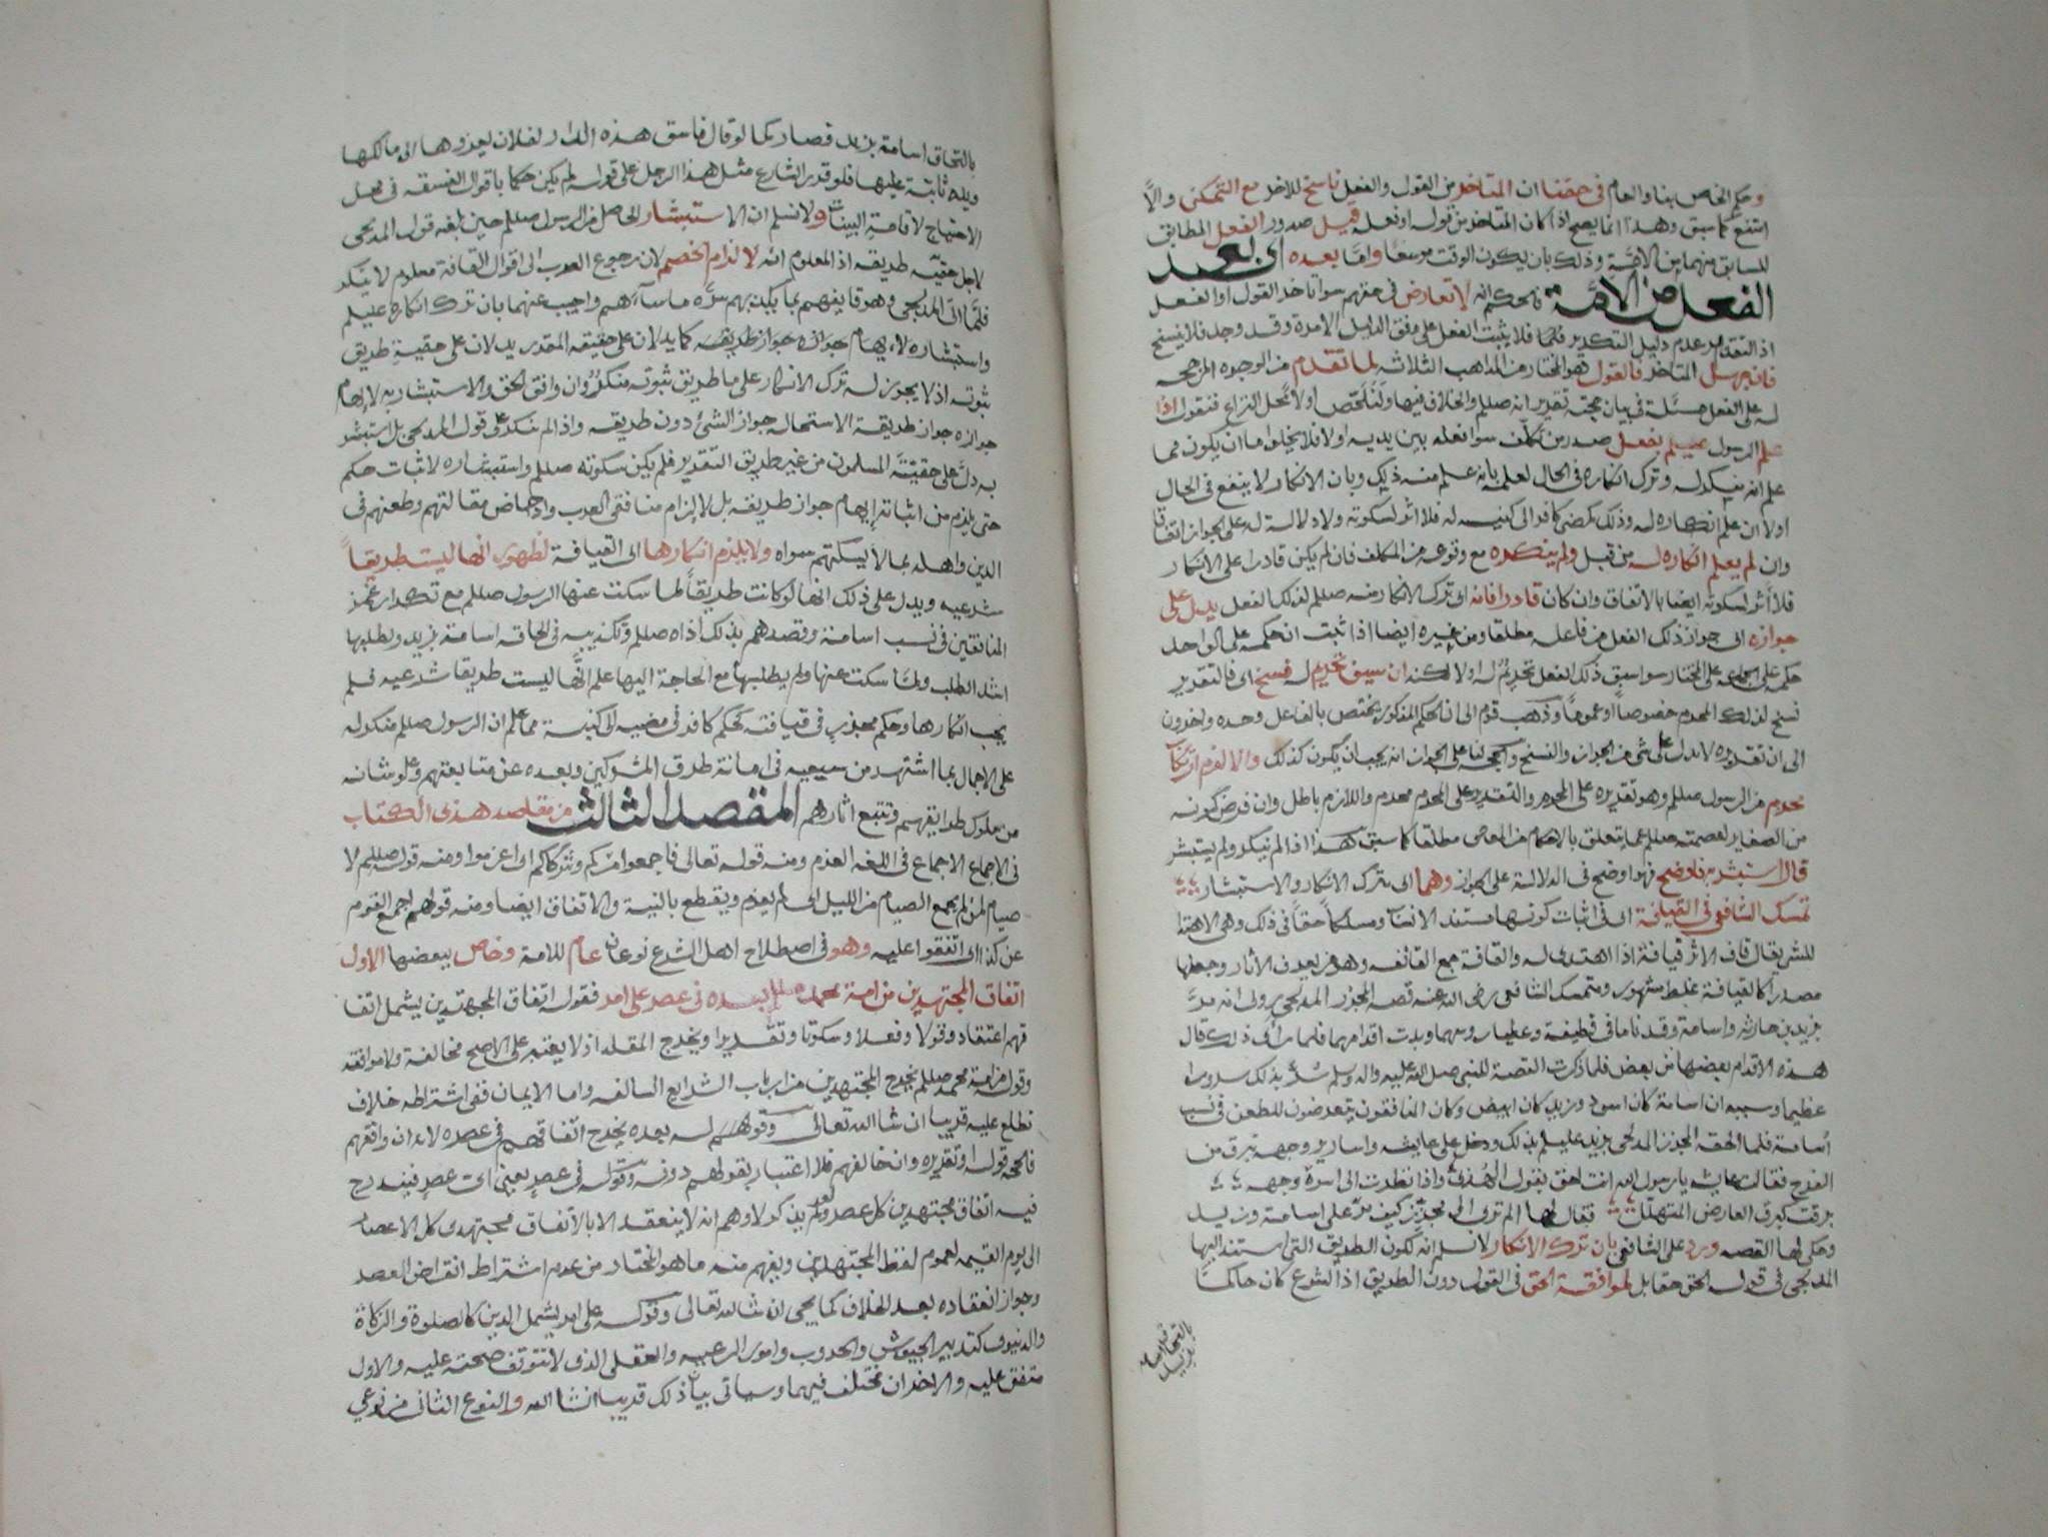 وحكم الخاص بناء والعام في حقنا ان المتاخر من القول والفعل ناسخ للاخر مع التمكن والا
امتنع كما سبق وهذا انما يصح اذا كان المتاخر من قوله او فعله قبل صدور الفعل المطابق
للسابق منهما من الامة وذلك بان يكون الوقت موسعا واما بعده اى بعد
الفعل من الامة فالحكم انه لا تعارض في حقهم سوا تاخر القول او الفعل
اذ التقدير عدم دليل التكرير فلما فلا يثبت الفعل على وفق الدليل الا مرة وقد وجد فلا ينسخ
فان جهل المتاخر فالقول هو المختار من المذاهب الثلاثة لما تقدم من الوجوه المرجحة
له على الفعل مسئلة في بيان حجية تقريره صللم والخلاف فيها ولنلخص اولا محل النزاع فنقول اذا
علم الرسول عليلم بفعل صدر من مكلف سوا فعله بين يديه اولا فلا يخلوا ما ان يكون مما
علم انه ينكر له وترك انكاره في الحال لعلمه بانه علم منه ذلك وبان الانكار لا ينفع في الحال
اولا ان علم انكاره له وذلك كمضى كافر الى كنيسة له فلا اثر لسكوته ولا دلالة له على الجواز اتفاقا
وان لم يعلم انكاره له من قبل ولم ينكره مع وقوعه من المكلف فان لم يكن قادرا على الانكار
فلا اثر لسكوته ايضا بالاتفاق وان كان قادرا فانه اى ترك الانكار منه صللم لذلك الفعل يدل على
جوازه اى جواز ذلك الفعل من فاعله مطلقا ومن غيره ايضا اذا ثبت ان حكمه على الواحد
حكمه على الجماعة على المختار سوا سبق ذلك الفعل تحريم له اولا لكنه ان سبق تحريم له فنسخ اى فالتقرير
نسخ لذلك المحرم خصوصا او عموما وذهب قوم الى ان الحكم المذكور يختص بالفاعل وحده واخرون
الى ان تقريره لا يدل على شى من الجواز والنسخ والحجة لنا على الجواز انه يجب ان يكون كذلك والا لزم ارتكاب
محرم من الرسول صللم وهو تقريره على المحرم والتقرير على المحرم محرم واللازم باطل وان فرض كونه
من الصغاير لعصمته صللم عما يتعلق بالاحكام من المعاصي مطلقا كما سبق هذا اذا لم ينكر ولم يستبشر
قال استبشر به فاوضح فهو اوضح في الدلالة على الجواز وهما اى ترك الانكار والاستبشار
تمسك الشافعي في القيافة اى في اثبات كونها مستند الانساب ومسلكا حقا في ذلك وهي الاهتدا
للشى يقال قاف الاثر قيافة اذا اهتدى له والقافة جمع القائف وهو من يعرف الآثار وجعلها
مصدرا كالقيافة غلط مشهور ومتمسك الشافعي رضي الله عنه قصة المجزز المدلجي روى انه مرّ
بزيد بن حارثه واسامة وقد ناما في قطيفة وغطيا روسهما وبدت اقدامهما فلما راى ذلك قال
هذه الاقدام بعضها من بعض فلما ذكرت القصة للنبي صلى الله عليه واله وسلم سُرّ بذلك سرورا
عظيما وسببه ان اسامة كان اسود وزيد كان ابيض وكان المنافقون يتعرضون للطعن في نسب
اسامة فلما الحقه المجزز المدلجي بزيد عليلم بذلك ودخل على عايشه واسارير وجهه تبرق من
الفرح فقالت عايشه يا رسول الله انت احق بقول الهذلي واذا نظرت الى اسرة وجهه
برقت كبرق العارض المتهلل فقال لها الم ترى الى مجزز كيف مرّ على اسامة وزيد
وحكى لها القصه ورد على الشافعي بان ترك الانكار لا نسلم انه لكون الطريق التى استند اليها
المدلجي في قوله الحق حقا بل لموافقة الحق في القول دون الطريق اذ الشرع كان حاكمًا
بالتحاق اسامة بزيد
بالتحاق اسامة بزيد فصار كما لو قال فاسق هذه الدار لفلان يعزوها الى مالكها
ويده ثابتة عليها فلو قرر الشارع مثل هذا الرجل على قوله لم يكن حكما باقوال الفسقه في محل
الاحتياج لاقامة البينات ولا نسلم ان الاستبشار الحاصل من الرسول صللم حين بلغه قول المدلجي
لاجل حقيّه طريقه اذ المعلوم انه لالزام الخصم لان رجوع العرب الى اقوال القافة معلوم لا ينكر
فلما اتى المدلجي وهو قايفهم بما يكبت بهم سرّه ما ساءهم واجيب عنهما بان ترك انكاره عليلم
واستبشاره لا يهام جوازه جواز طريقه كما يدلان على حقيقه المقدر يدلان على حقيّة طريق
ثبوته اذ لا يجوز له ترك الانكار على ما طريق ثبوته منكر وان وافق الحق والاستبشار به لايهام
جوازه جواز طريقة الاستحاله جواز الشئ دون طريقه واذ الم ينكر على قول المدلجي بل استبشر
به دل على حقيّته المسلمون من غير طريق التقدير فلم يكن سكوته صللم واستبشاره لاثبات حكم
حتى يلزم من اثباته ايهام جواز طريقه بل لالزام منافقى العرب وادحاض مقالتهم وطعنهم في
الدين واهله بما لا يسكتهم سواه ولا يلزم انكارها اى القيافة لظهور انها ليست طريقا
شرعيه ويدل على ذلك انها لو كانت طريقا لما سكت عنها الرسول صللم مع تكرار غمز
المنافقين في نسب اسامة وقصدهم بذلك اذاه صللم وتكذيبه في الحاقه اسامة بزيد ولطلبها
اشد الطلب ولما سكت عنها ولم يطلبها مع الحاجة اليها علم انها ليست طريقا شرعيه فلم
يجب انكارها وحكم مجزز في قيافته كحكم كافر في مضيه لا كنيسة مما علم ان الرسول صللم منكر له
على الاجمال بما اشتهر من سعيه في اماتة طرق المشركين وبعده عن متابعتهم وعلو شانه
من سلوك طرايقهم وتتبع اثارهم المقصد الثالث من مقاصد هذى الكتاب
فى الاجماع الاجماع فى اللغه العزم ومنه قوله تعالى فاجمعوا امركم وشركاكم اى اعزموا ومنه قوله صللم لا
صيام لمن لم يجمع الصيام من الليل اى لم يعزم ويقطع بالنية والاتفاق ايضا ومنه قولهم اجمع القوم
عن كذا اى اتفقوا عليه وهو في اصطلاح اهل الشرع نوعان عام للامة وخاص ببعضها الاول
اتفاق المجتهدين من امة محمد صللم بعده في عصر على امر فقوله اتفاق المجتهدين يشمل اتفا
قهم اعتقاد وقولا وفعلا وسكوتا وتقريرا ويخرج المقلد اذ لا يعتبر على الاصح مخالفة ولا موافقه
وقوله من امة محمد صللم يخرج المجتهدين من ارباب الشرايع السالفه واما الايمان ففي اشتراطه خلاف
نطلع عليه قريبا ان شا الله تعالى وقولهم له بعده يخرج اتفاقهم في عصره لانه ان وافقهم
فالحجه قوله او تقريره وان خالفهم فلا اعتبار بقولهم دونه وقوله في عصر يعني اى عصر فيندرج
فيه اتفاق مجتهدين كل عصر ولو لم يذكر لاوهم انه لا ينعقد الا بالاتفاق مجتهدى كل الاعصار
الى يوم القيمه لعموم لفظ المجتهدين ويفهم منه ما هو المختار من عدم اشتراط انقراض العصر
وجواز انعقاده بعد الخلاف كما يجى ان شا الله تعالى وقوله على امر يشمل الدين كالصلوة والزكاة
والدنيوى كتدبير الجيوش والحروب وامور الرعيه والعقلى الذى لا تتوقف صحته عليه والاول
متفق عليه والاخران مختلف فيهما وسياتى بيان ذلك قريبا انشا الله والنوع الثانى من نوعي